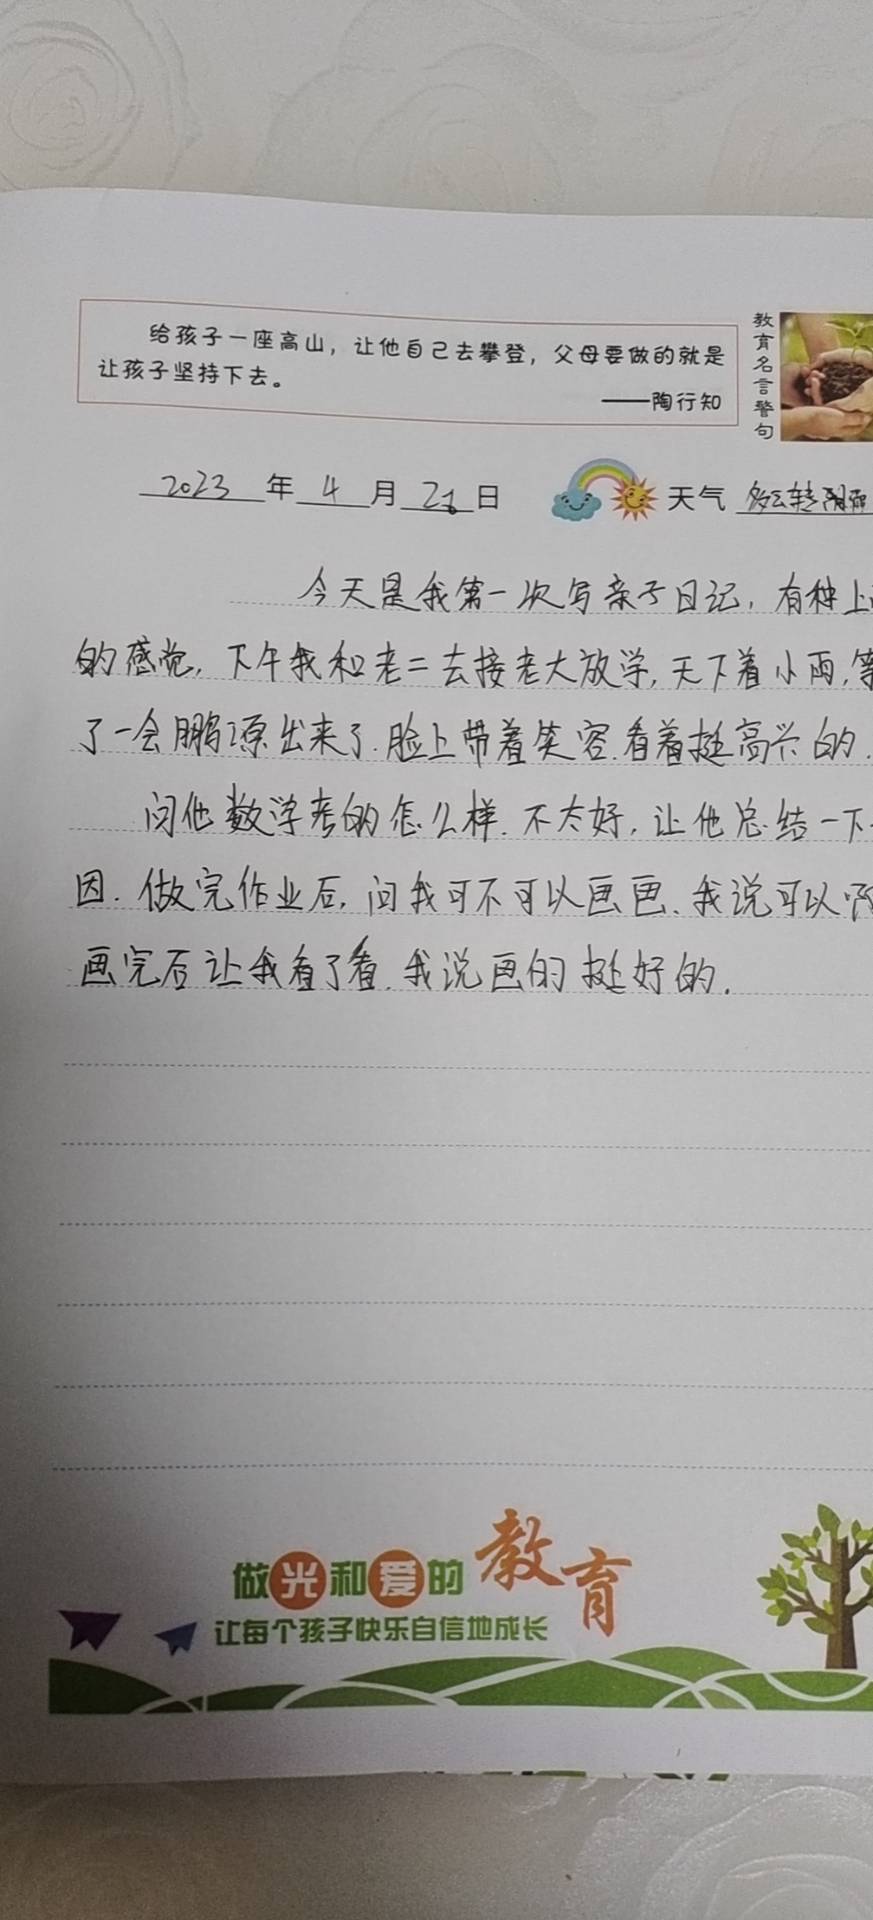 给孩子一座高山，让他自己去攀登，父母要做的就是
让孩子坚持下去。
——陶行知
教育名言警句
2023年4月2日 天气 多云转阴
今天是我第一次写亲子日记，有种上
的感觉，下午我和老二去接老大放学，天下着小雨，等
了一会鹏源出来了.脸上带着笑容.看着挺高兴的.
问他数学考的怎么样.不太好，让他总结一下
因.做完作业后，问我可不可以画画、我说可以啊
画完后让我看了看.我说画的挺好的.
做光和爱的教育
让每个孩子快乐自信地成长